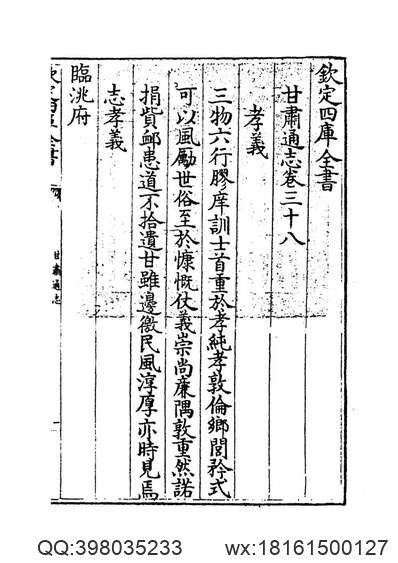 欽定四庫全書
甘肅通志卷三十八
孝義
三物六行膠庠訓士首重於孝純孝敦倫鄉閭矜式
可以風勵世俗至於慷慨仗義崇尚廉隅敦重然諾
捐貲䘏患道不拾遺甘雖邊徼民風淳厚亦時見焉
志孝義
臨洮府
欽定四庫全書
甘肅通志
一
QQ:398035233 wx:18161500127